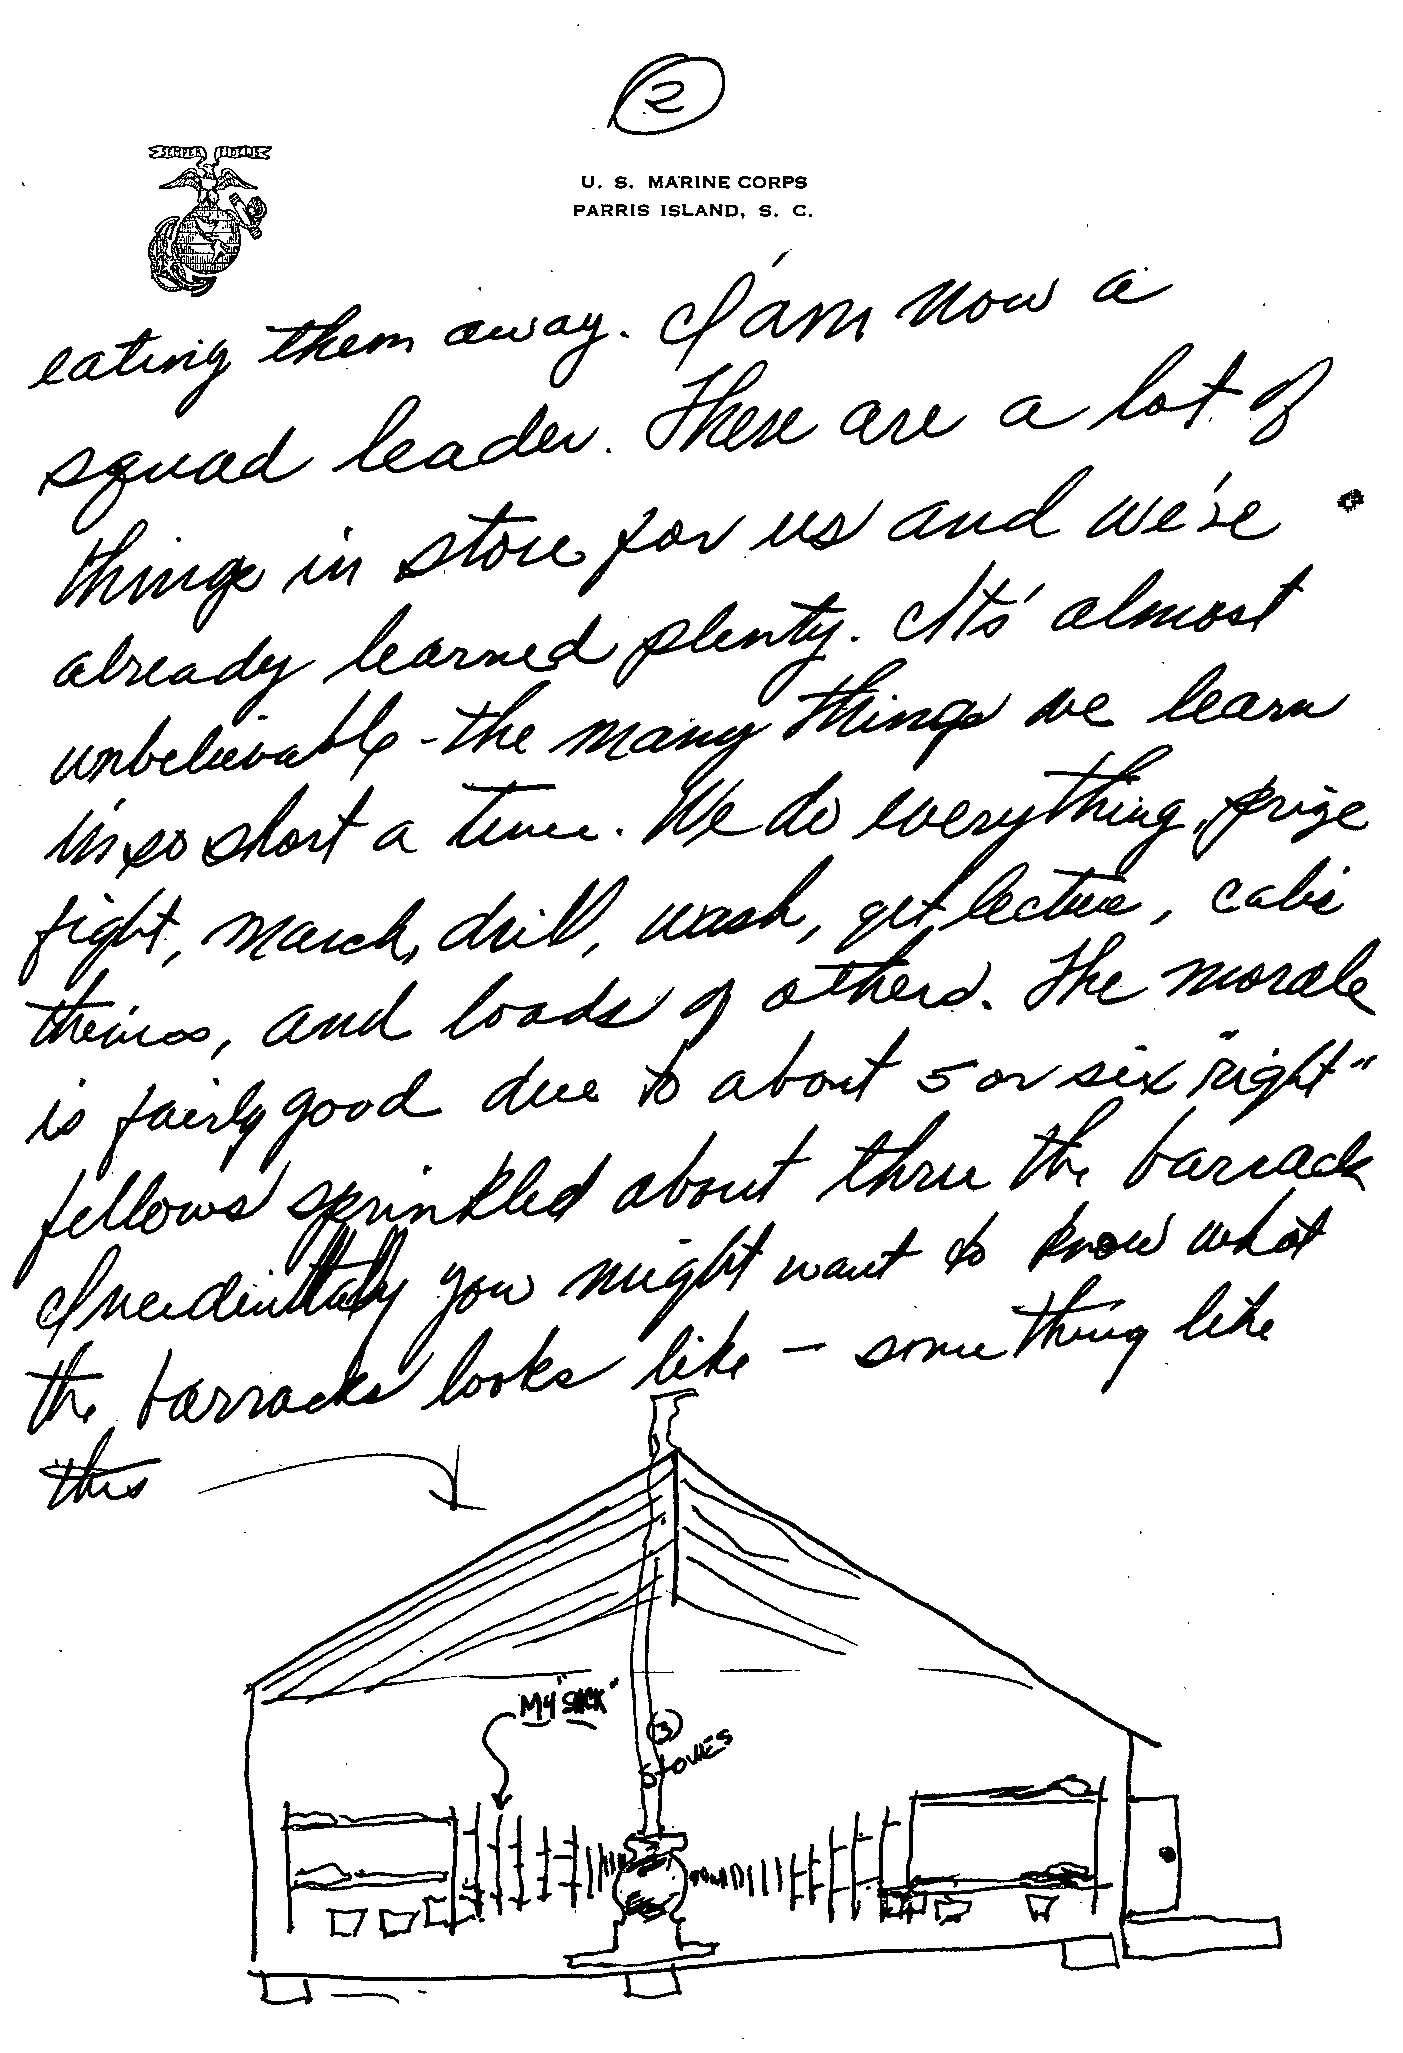 2
SEMPER FIDELIS
U. S. MARINE CORPS
PARRIS ISLAND, S. C.
eating them away. I'am now a
squad leader. There are a lot of
things in store for us and we've
already learned plenty. It's almost
unbelievable - the many things we learn
in so short a time. We do everything, prize
fight, march, drill, wash, get lecture,
and loads of others. The morale
is fairly good due to about 5 or six "right"
fellows sprinkled about thru the barrack
you might want to know what
the barracks looks like - something like
this
MY "SACK"
3
STOVES